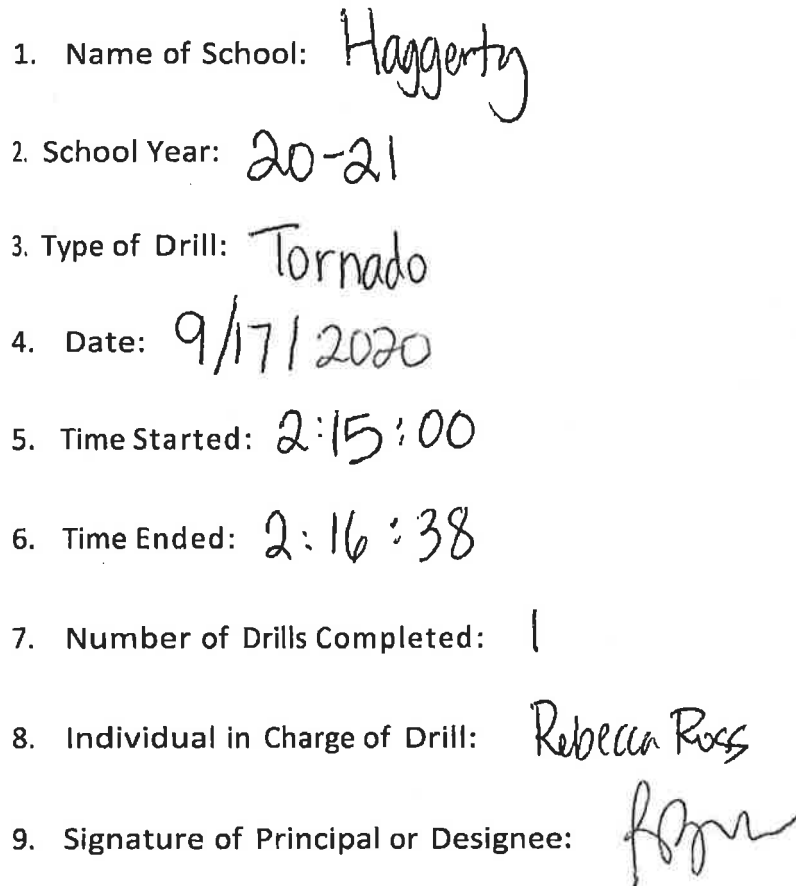 1. Name of School: Haggerty
2. School Year: 20-21
3. Type of Drill: Tornado
4. Date: 9/17/2020
5. Time Started: 2:15:00
6. Time Ended: 2:16:38
7. Number of Drills Completed: 1
8. Individual in Charge of Drill: Rebecca Ross
9. Signature of Principal or Designee: